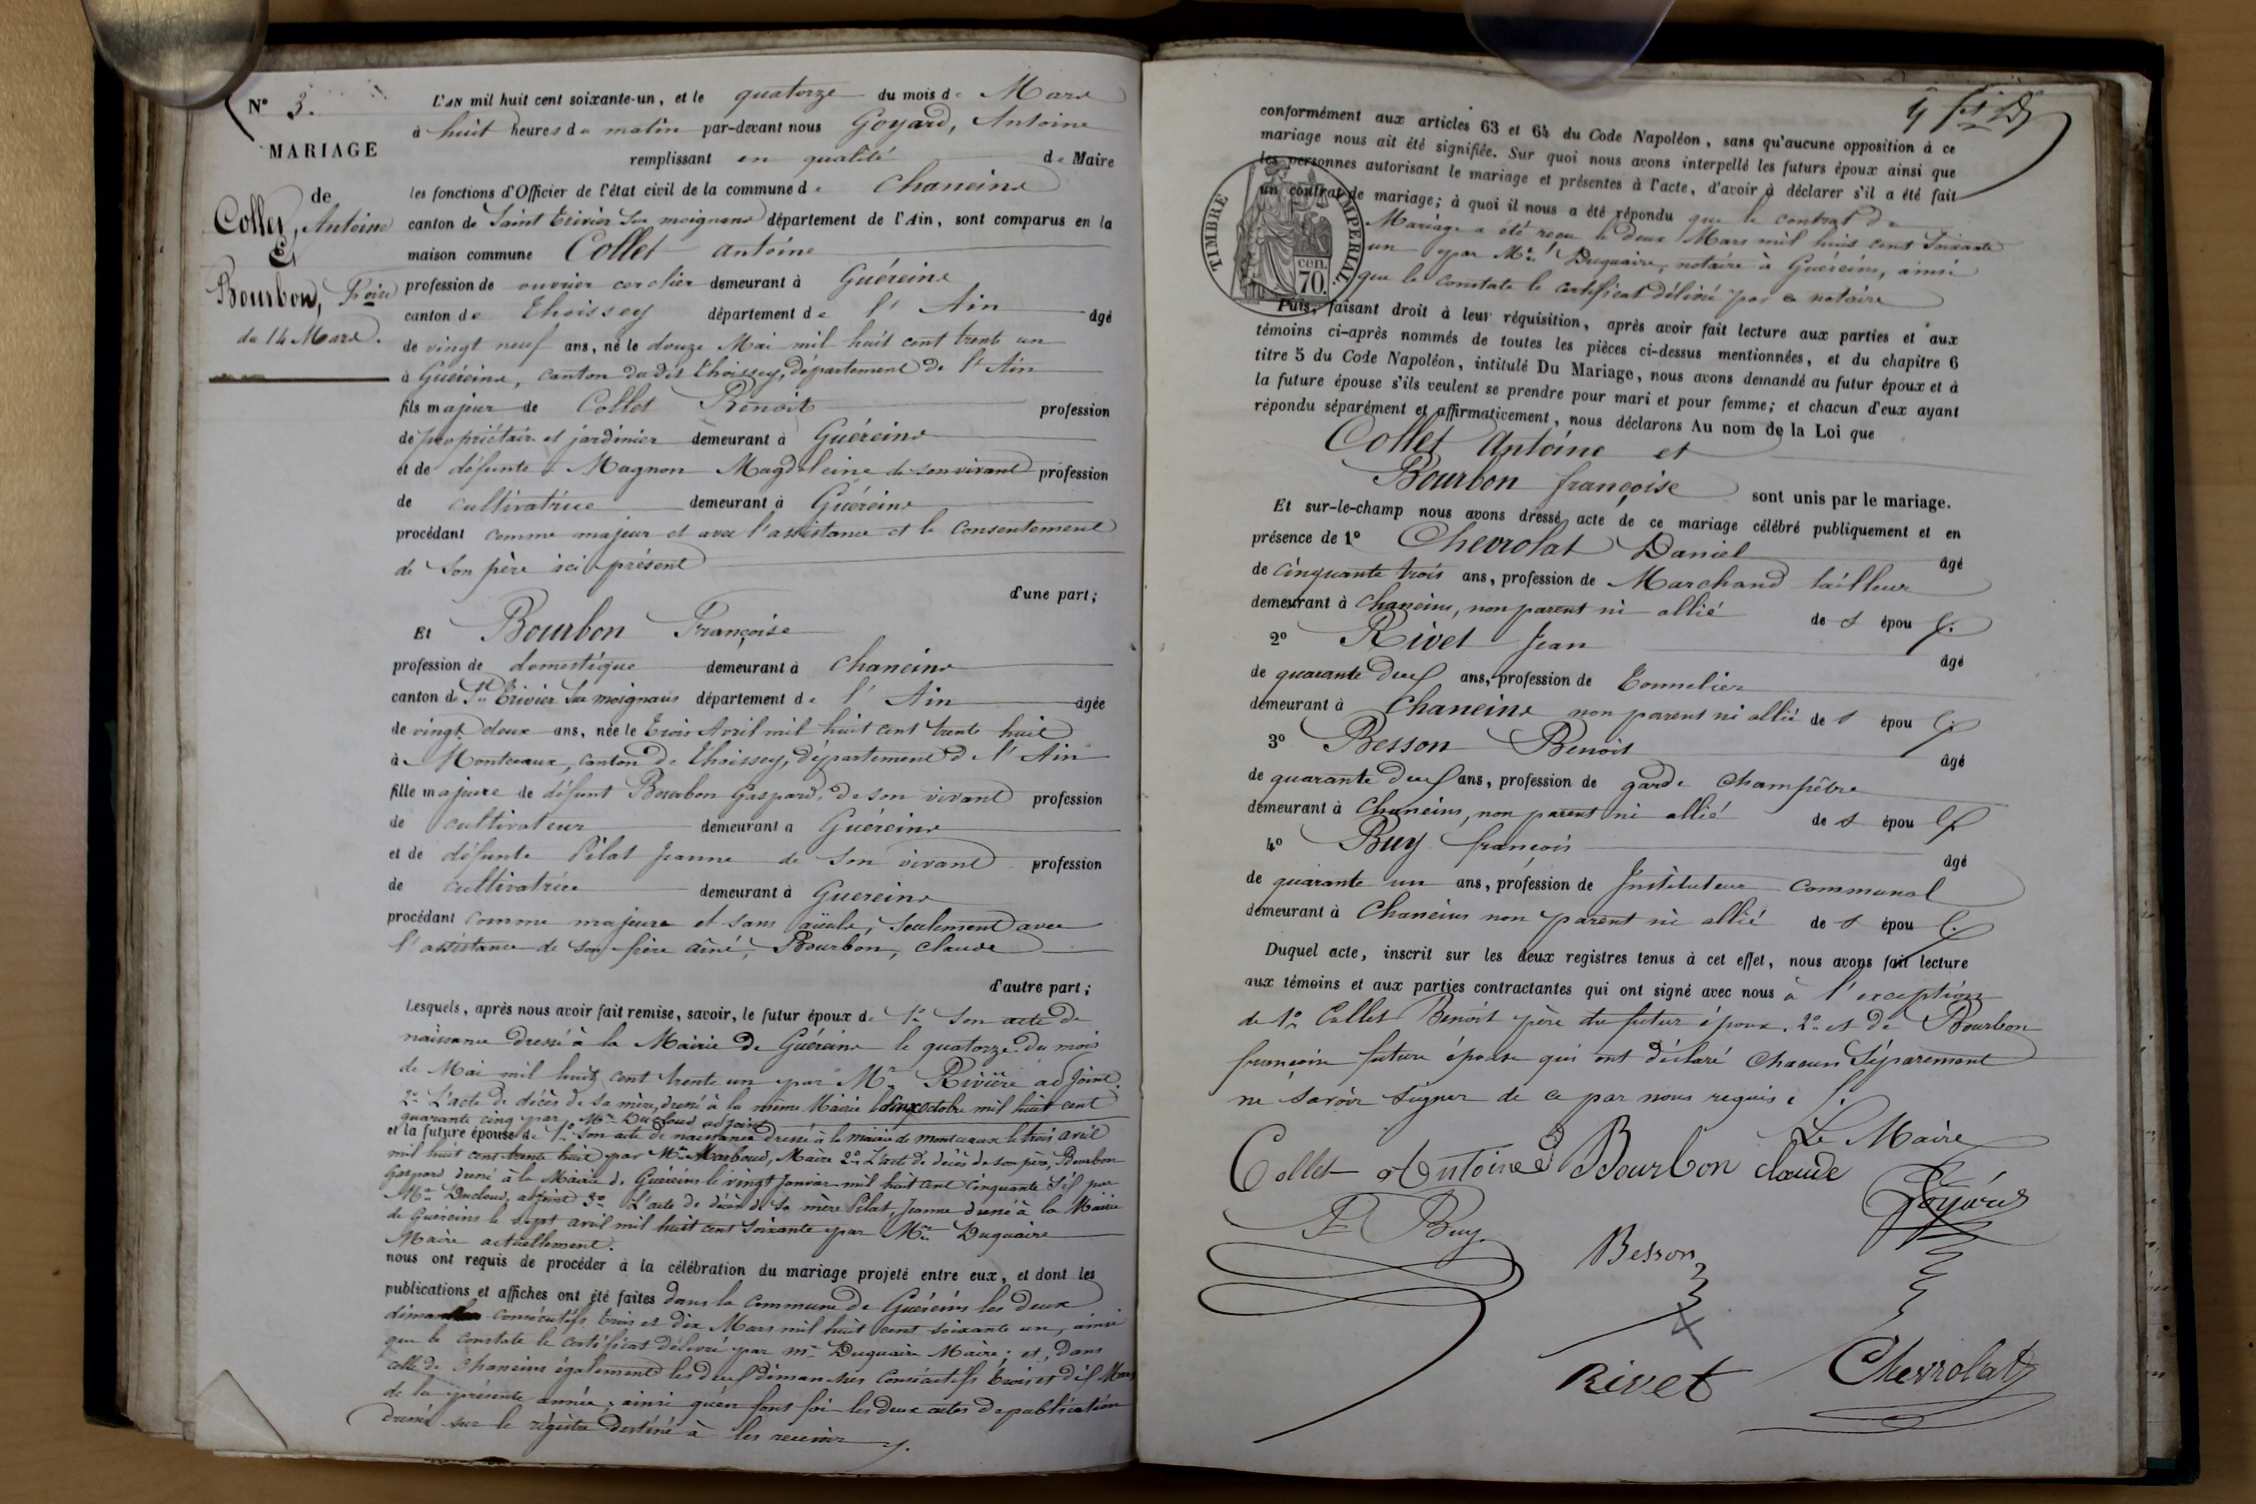 N° 3.
MARIAGE
de
Collet, Antoine
Et
Bourbon, Fçoise
du 14 Mars.
L'AN mil huit cent soixante-un, et le quatorze du mois de Mars
à huit heures du matin par-devant nous Goyard, Antoine
remplissant en qualité de Maire
les fonctions d'Officier de l'état civil de la commune de Chaneins
canton de Saint Trivier Sur moignans département de l'Ain, sont comparus en la
maison commune Collet Antoine
profession de ouvrier cerclier demeurant à Guéreins
canton de Thoissey département de l'Ain âgé
de vingt neuf ans, né le douze Mai mil huit cent trente un
à Guéreins, canton du dit Thoissey, département de l'Ain
fils majeur de Collet Benoit profession
de propriétaire et jardinier demeurant à Guéreins
et de défunte Magnon Magdeleine de son vivant profession
de cultivatrice demeurant à Guéreins
procédant comme majeur et avec l'assistance et le consentement
de son père ici présent
d'une part;
Et Bourbon Françoise
profession de domestique demeurant à Chaneins
canton de St Trivier Sur moignans département de l'Ain âgée
de vingt deux ans, née le trois Avril mil huit cent trente huit
à Montceaux, canton de Thoissey, département de l'Ain
fille majeure de défunt Bourbon Gaspard, de son vivant profession
de cultivateur demeurant à Guéreins
et de défunte Pélat Jeanne de son vivant profession
de cultivatrice demeurant à Guereins
procédant comme majeure et sans aïeuls, seulement avec
l'assistance de son frère aîné, Bourbon, claude
d'autre part;
Lesquels, après nous avoir fait remise, savoir, le futur époux de 1° son acte de
naissance dressé à la Mairie de Guéreins le quatorze du mois
de Mai mil huit cent trente un par Mr Rivière adjoint.
2° L'acte de décès de sa mère, dressé à la même Mairie le deux octobre mil huit cent
quarante cinq par Mr Ducloud adjoint
et la future épouse de 1° son acte de naissance dressé à la mairie de montceaux le trois avril
mil huit cent trente huit par Mr Marboud, Maire 2° L'acte de décès de son père, Bourbon
Gaspard dressé à la Mairie de Guéreins le vingt Janvier mil huit cent cinquante six par
Mr Ducloud, adjoint 3° L'acte de décès de sa mère Pélat, Jeanne dressé à la Mairie
de Guéreins le sept avril mil huit cent soixante par Mr Duquaire
Maire actuellement.
nous ont requis de procéder à la célébration du mariage projeté entre eux, et dont les
publications et affiches ont été faites dans la commune de Guéreins les deux
dimanches consécutifs trois et dix Mars mil huit cent soixante un, ainsi
que le constate le certificat délivré par mr Duquaire Maire; et, dans
celle de Chaneins également les deux dimanches consécutifs trois et dix Mars
de la présente année; ainsi qu'en font foi les deux actes de publication
dressés sur le régistre destiné à les recevoir
conformément aux articles 63 et 64 du Code Napoléon, sans qu'aucune opposition à ce
mariage nous ait été signifiée. Sur quoi nous avons interpellé les futurs époux ainsi que
les personnes autorisant le mariage et présentes à l'acte, d'avoir à déclarer s'il a été fait
un contrat de mariage; à quoi il nous a été répondu que le contrat de
Mariage a été reçu le deux Mars mil huit cent soixante
un par Me Duquaire, notaire à Guéreins, ainsi
que le constate le certificat délivré par ce notaire
TIMBRE IMPERIAL.
cen.
70.
Puis, faisant droit à leur réquisition, après avoir fait lecture aux parties et aux
témoins ci-après nommés de toutes les pièces ci-dessus mentionnées, et du chapitre 6
titre 5 du Code Napoléon, intitulé Du Mariage, nous avons demandé au futur époux et à
la future épouse s'ils veulent se prendre pour mari et pour femme; et chacun d'eux ayant
répondu séparément et affirmativement, nous déclarons Au nom de la Loi que
Collet Antoine et
Bourbon françoise sont unis par le mariage.
Et sur-le-champ nous avons dressé acte de ce mariage célébré publiquement et en
présence de 1° Chevrolat Daniel âgé
de cinquante trois ans, profession de Marchand tailleur
demeurant à Chaneins, non parent ni allié des époux.
2° Rivet Jean âgé
de quarante deux ans, profession de Tonnelier
demeurant à Chaneins non parent ni allié des époux.
3° Besson Benoit âgé
de quarante deux ans, profession de garde Champêtre
demeurant à Chaneins, non parent ni allié des époux
4° Buy françois âgé
de quarante un ans, profession de Instituteur communal
demeurant à Chaneins non parent ni allié des époux.
Duquel acte, inscrit sur les deux registres tenus à cet effet, nous avons fait lecture
aux témoins et aux parties contractantes qui ont signé avec nous à l'exception
de 1° Collet Benoit père du futur époux. 2° et de Bourbon
françoise future épouse qui ont déclaré chacun séparement
ne savoir signer de ce par nous requis
Le Maire
Collet Antoine Bourbon claude
Goyard
F Buy.
Besson
Rivet Chevrolat